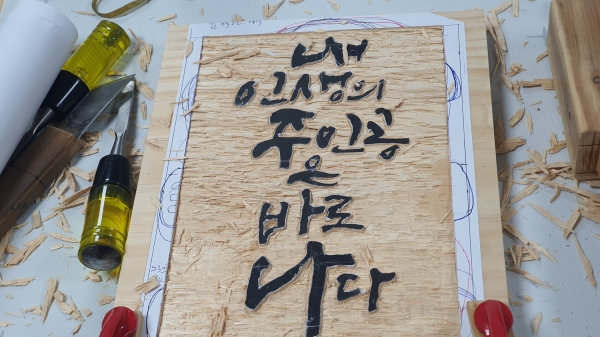 내
인생의
주인공
은
바로
나다